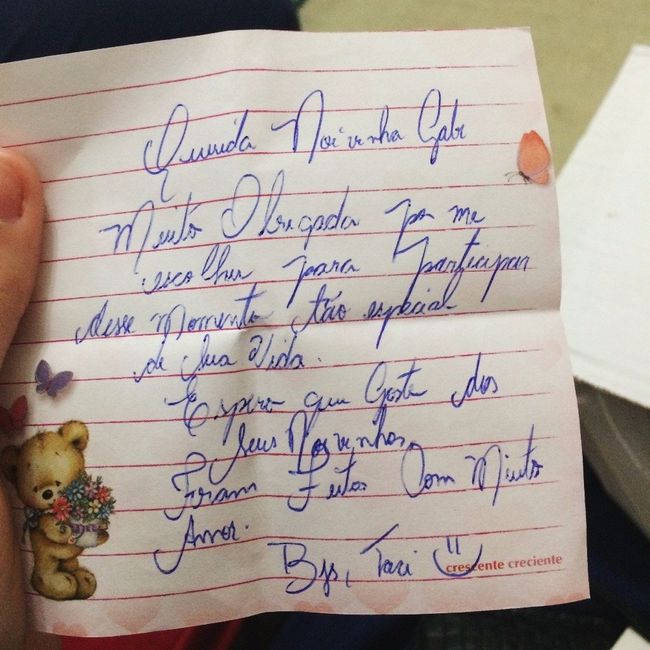 Querida Noivinha Gabi
Muito Obrigada por me
escolher para Participar
desse Momento tão especial
de sua Vida.
Espero que Goste dos
seus Noivinhos,
Foram Feitos Com Muito
Amor.
Bjs, Taci
crescente creciente